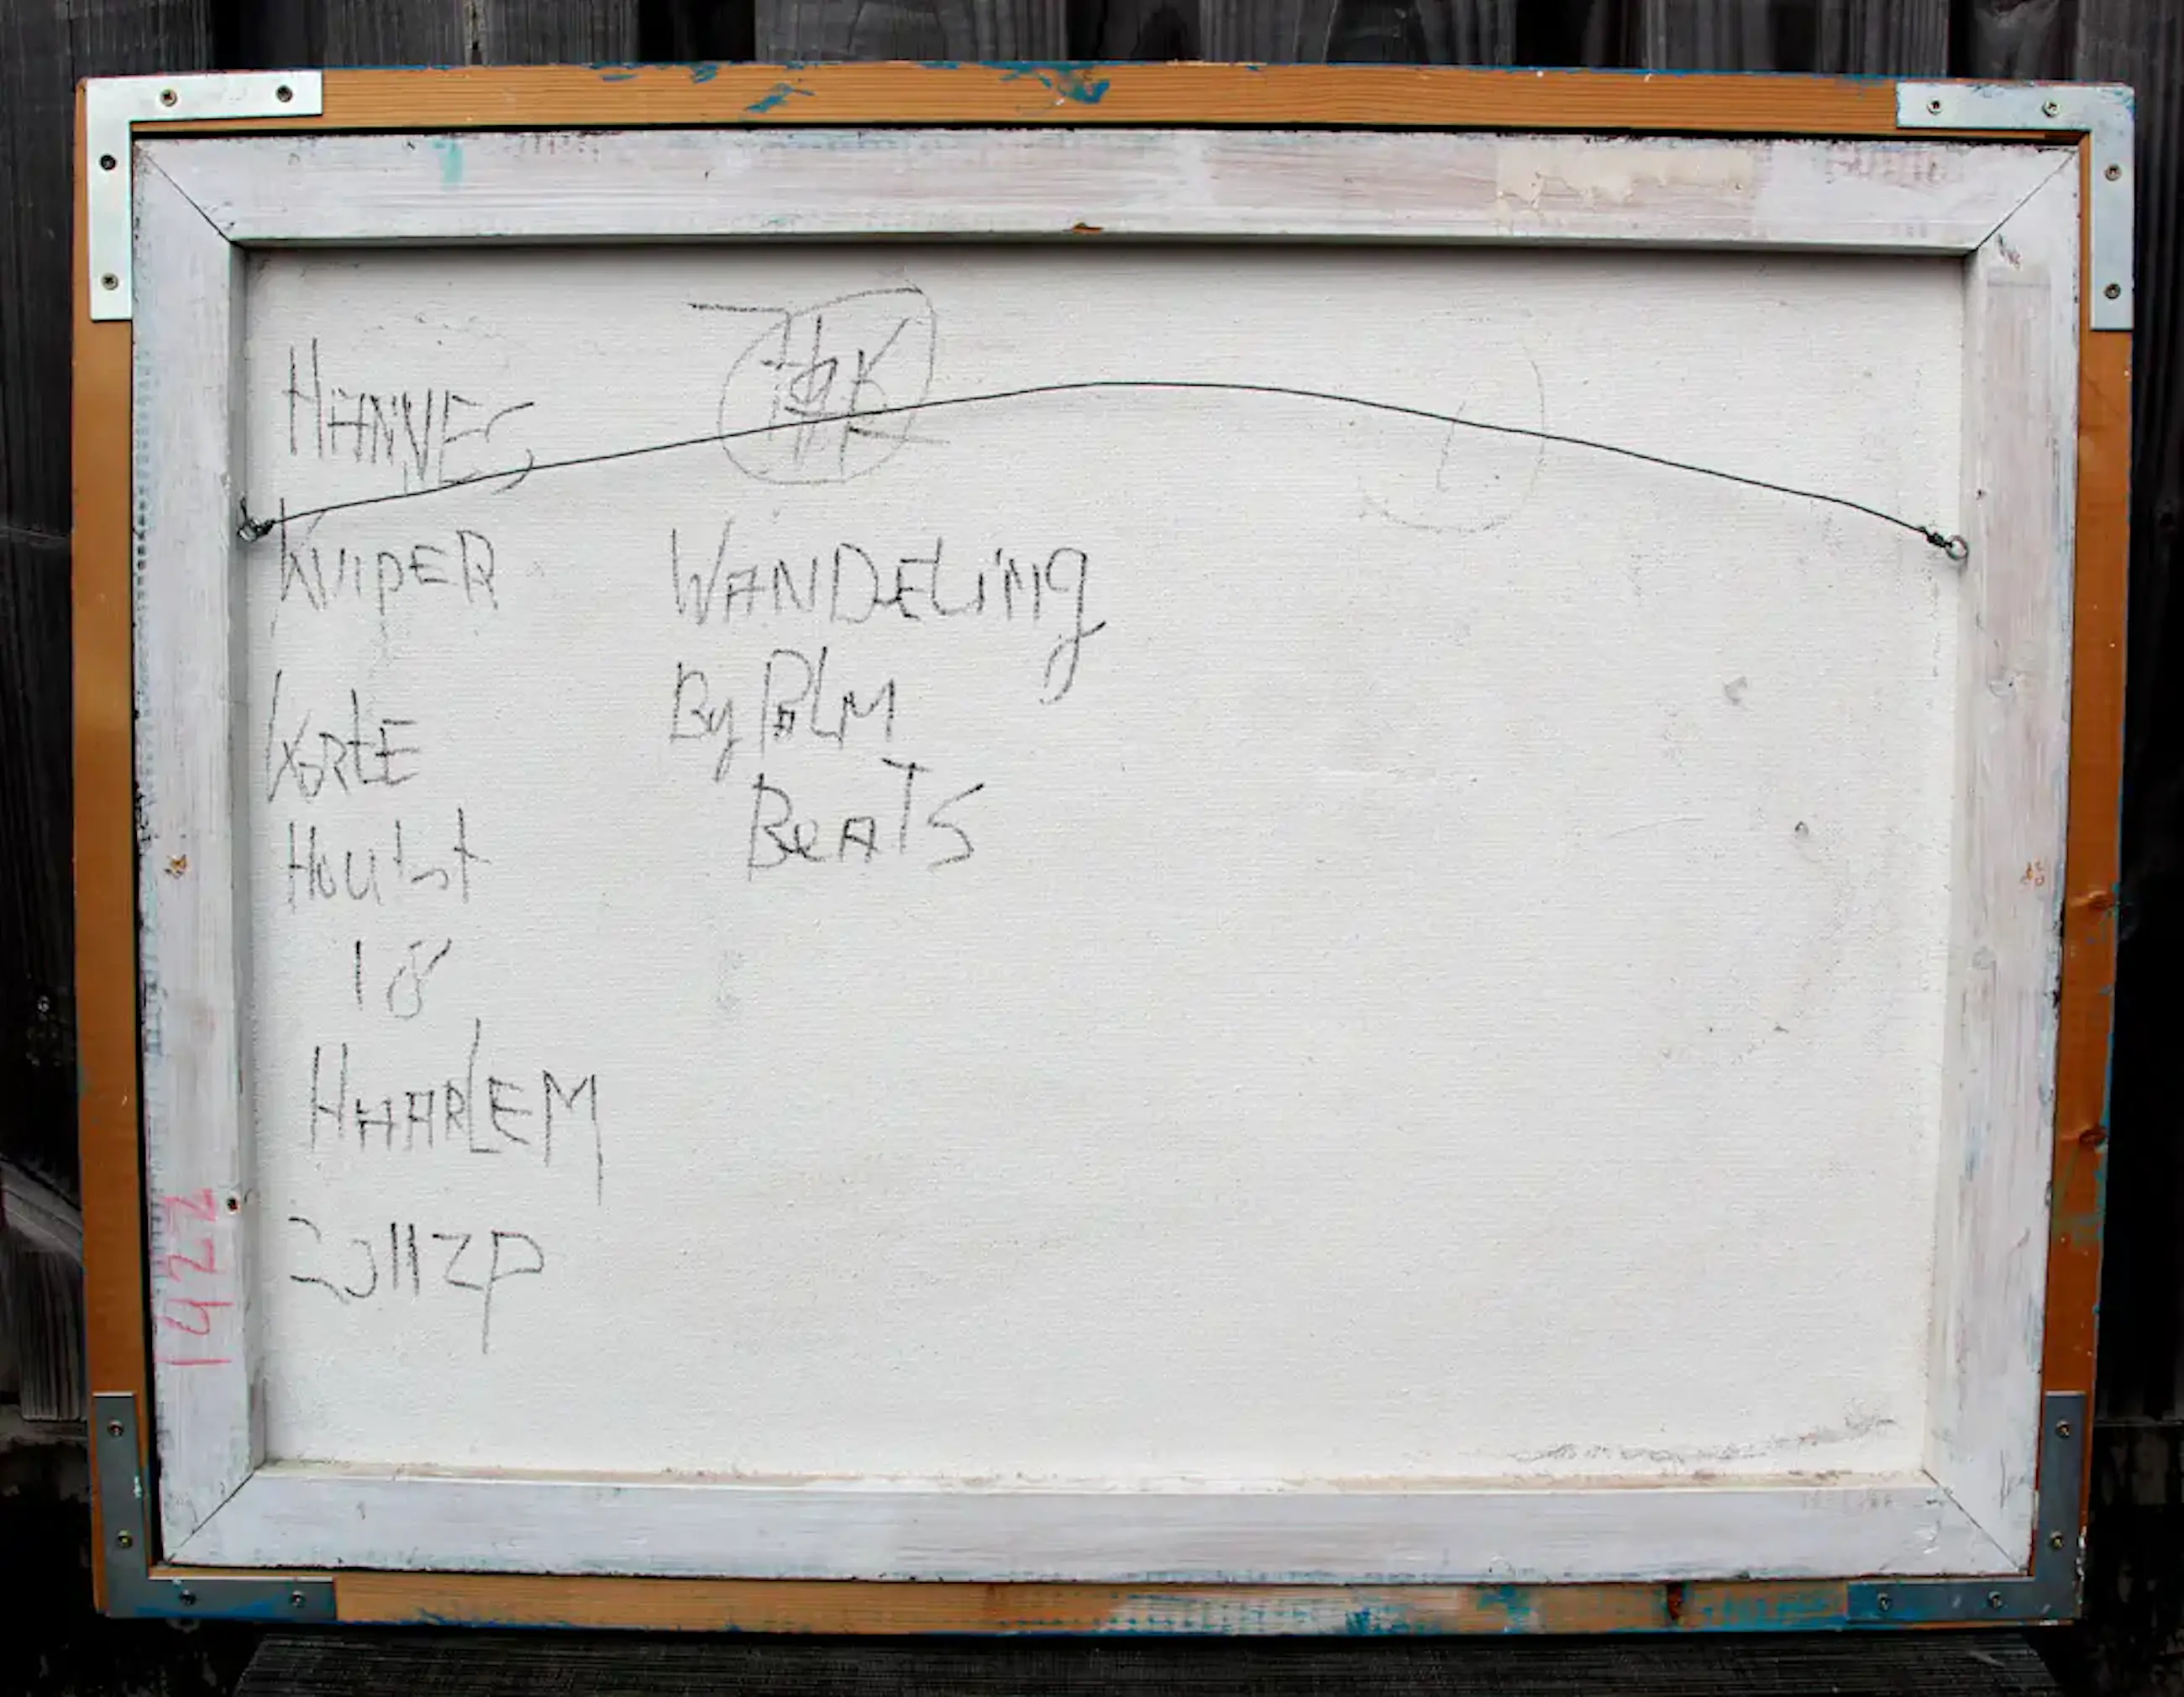 HANNES
KUIPER
KORTE
Houtst
18
HAARLEM
2011ZP
WANDELing
By PALM
BeATS
1922